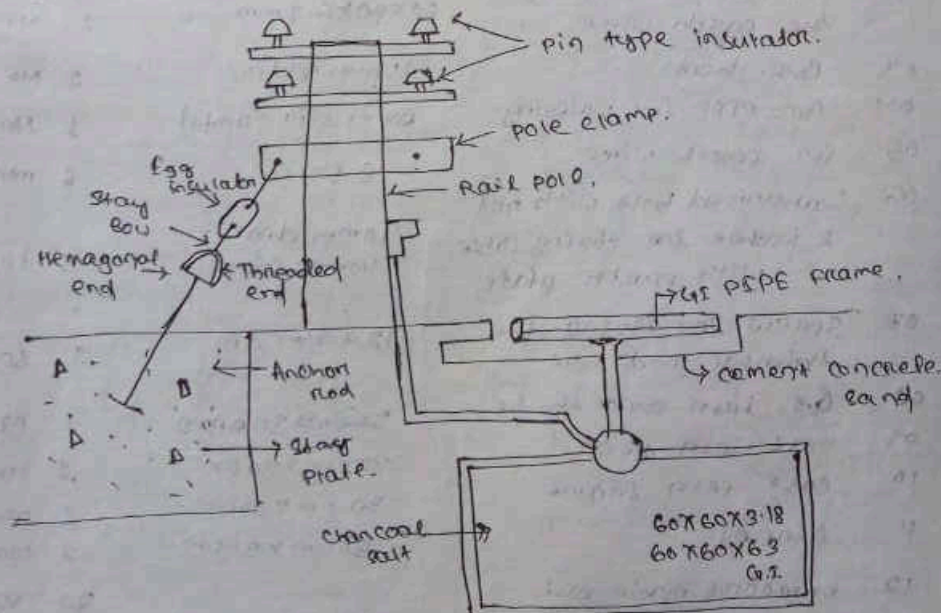 pin type insulator.
pole clamp.
Egg
insulator
Rail pole.
Stay
bow
Hexagonal
end
Threaded
end
GI PIPE Frame.
Anchor
rod
cement concrete
Stay
plate.
charcoal
salt
60x60x3.18
60x60x63
G.I.